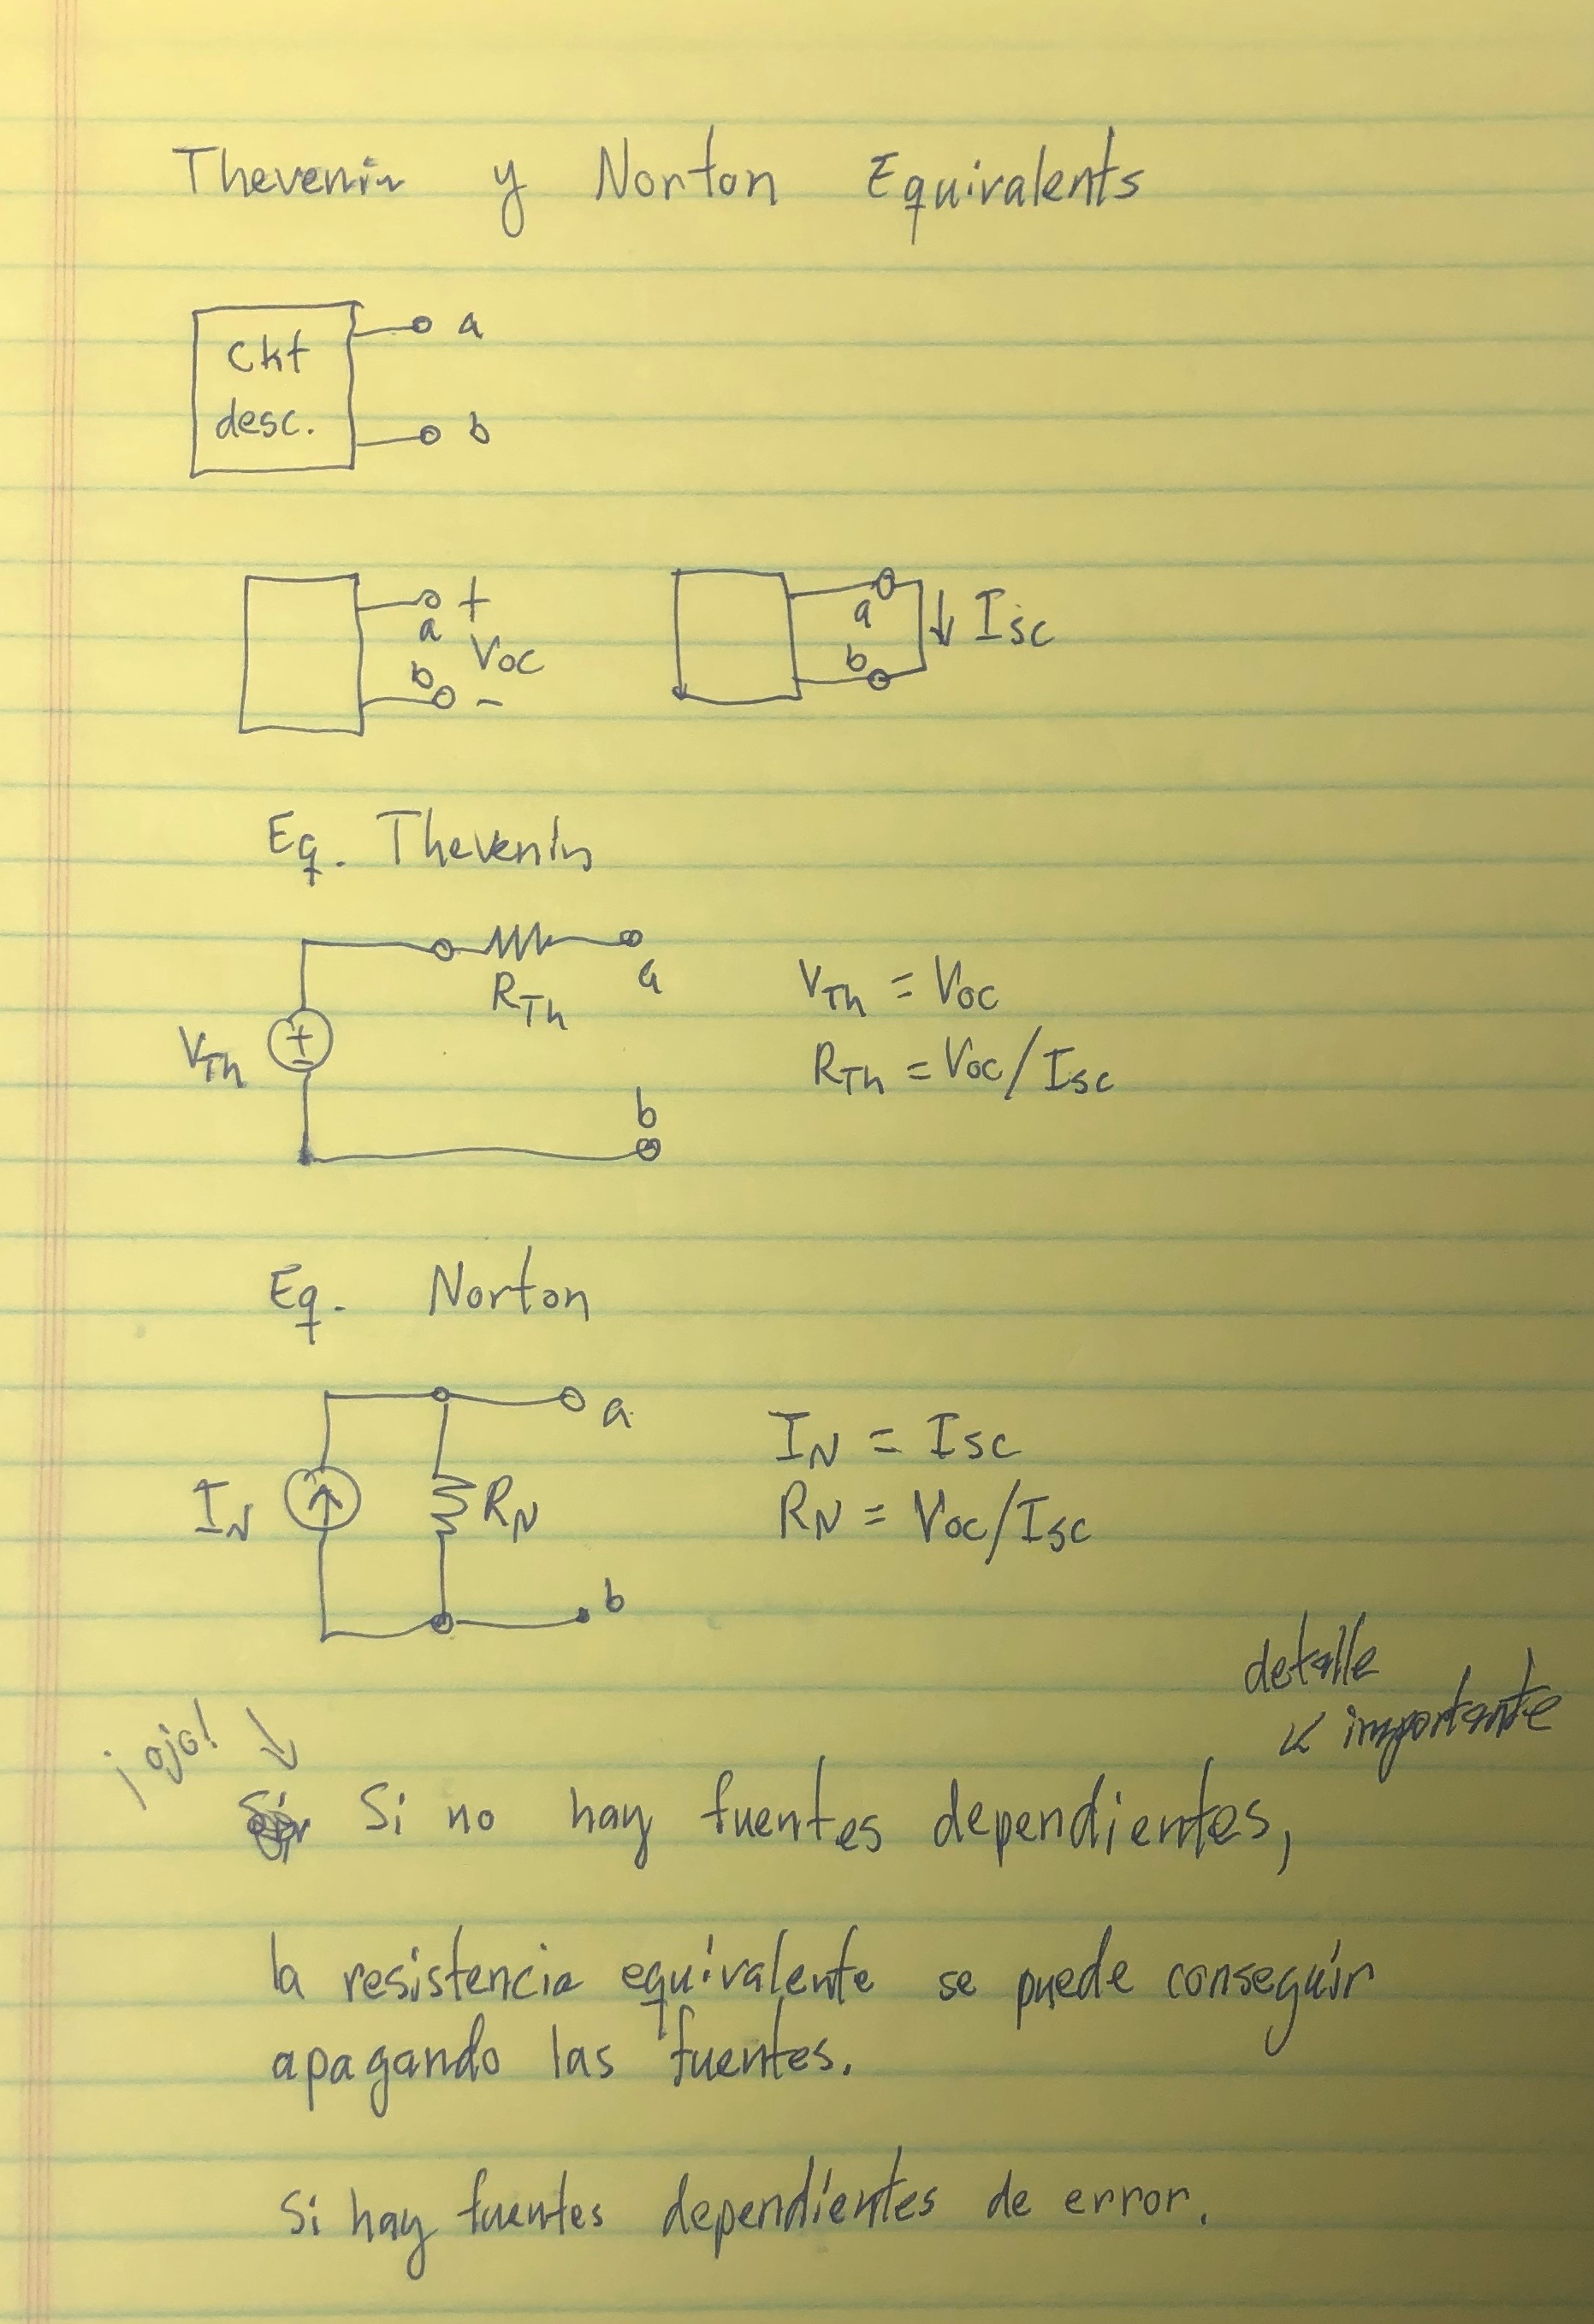 Thevenin y Norton Equivalents
Ckt
desc.
a
b
+
a
Voc
b
-
a
b
Isc
Eq. Thevenin
RTh
a
VTh
+
-
b
VTh = Voc
RTh = Voc/Isc
Eq. Norton
a
IN
RN
b
IN = Isc
RN = Voc/Isc
detalle
importante
¡ojo!
Si no hay fuentes dependientes,
la resistencia equivalente se puede conseguir
apagando las fuentes.
Si hay fuentes dependientes de error.